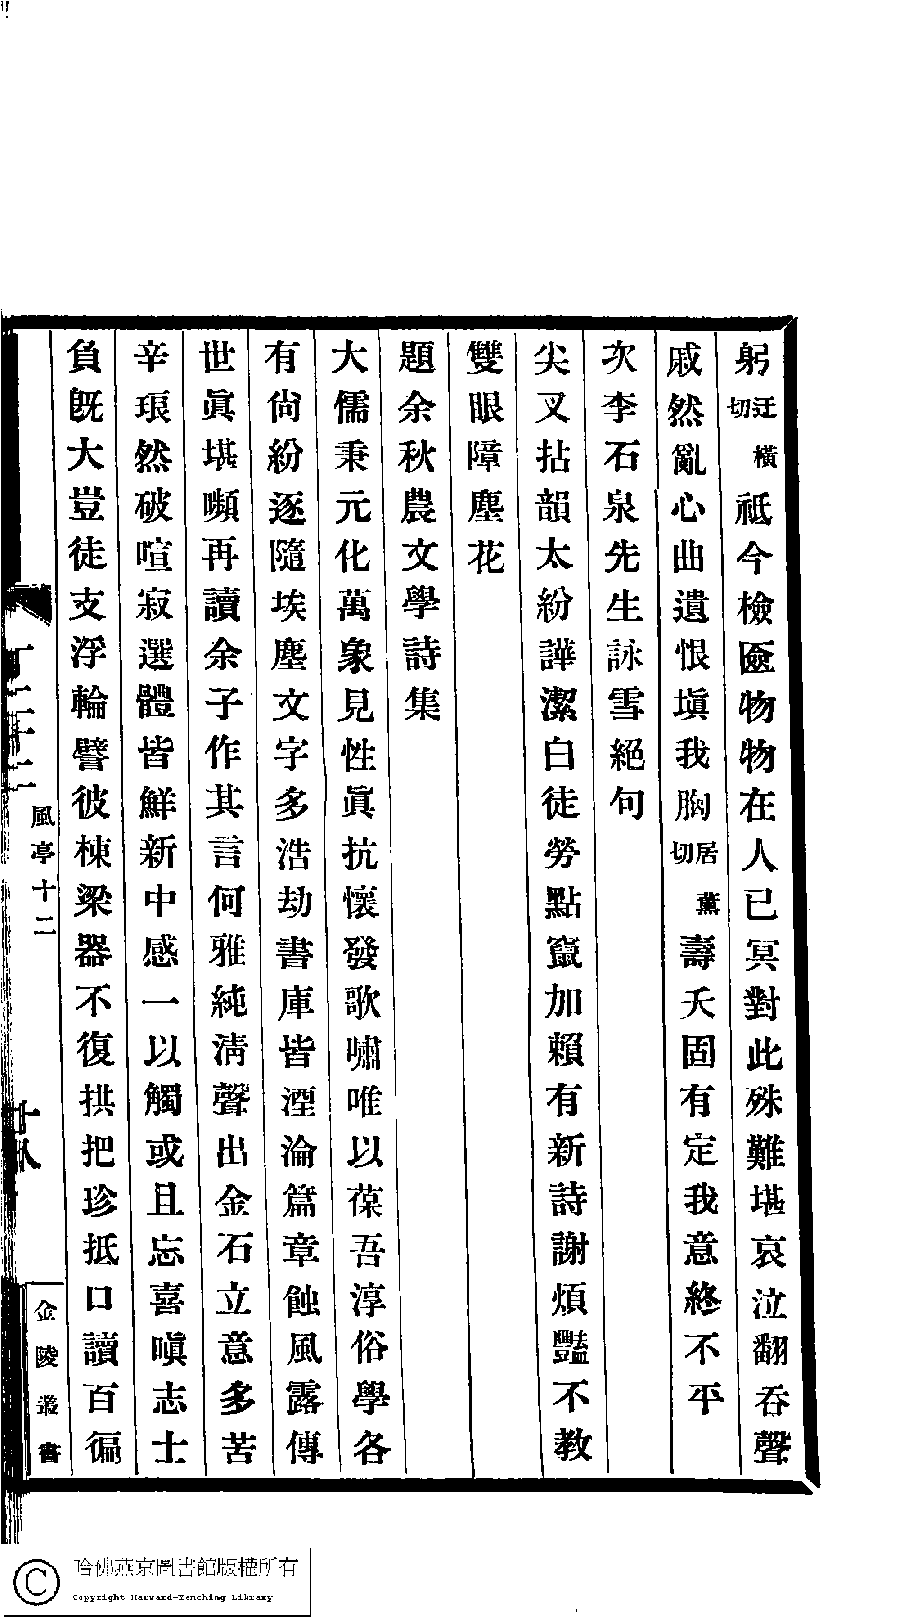 躬汪橫切祗今檢匳物物在人已冥對此殊難堪哀泣翻吞聲
戚然亂心曲遺恨塡我胸居薰切壽夭固有定我意終不平
次李石泉先生詠雪絕句
尖叉拈韻太紛譁潔白徒勞點竄加賴有新詩謝煩豔不教
雙眼障塵花
題余秋農文學詩集
大儒秉元化萬象見性眞抗懷發歌嘯唯以葆吾淳俗學各
有尙紛逐隨埃塵文字多浩劫書庫皆湮淪篇章蝕風露傳
世眞堪嚬再讀余子作其言何雅純淸聲出金石立意多苦
辛琅然破喧寂選體皆鮮新中感一以觸或且忘喜嗔志士
負旣大豈徒支浮輪譬彼棟梁器不復拱把珍抵口讀百徧
風亭十二
金陵叢書
哈佛燕京圖書館版權所有
Copyright Harvard-Yenching Library